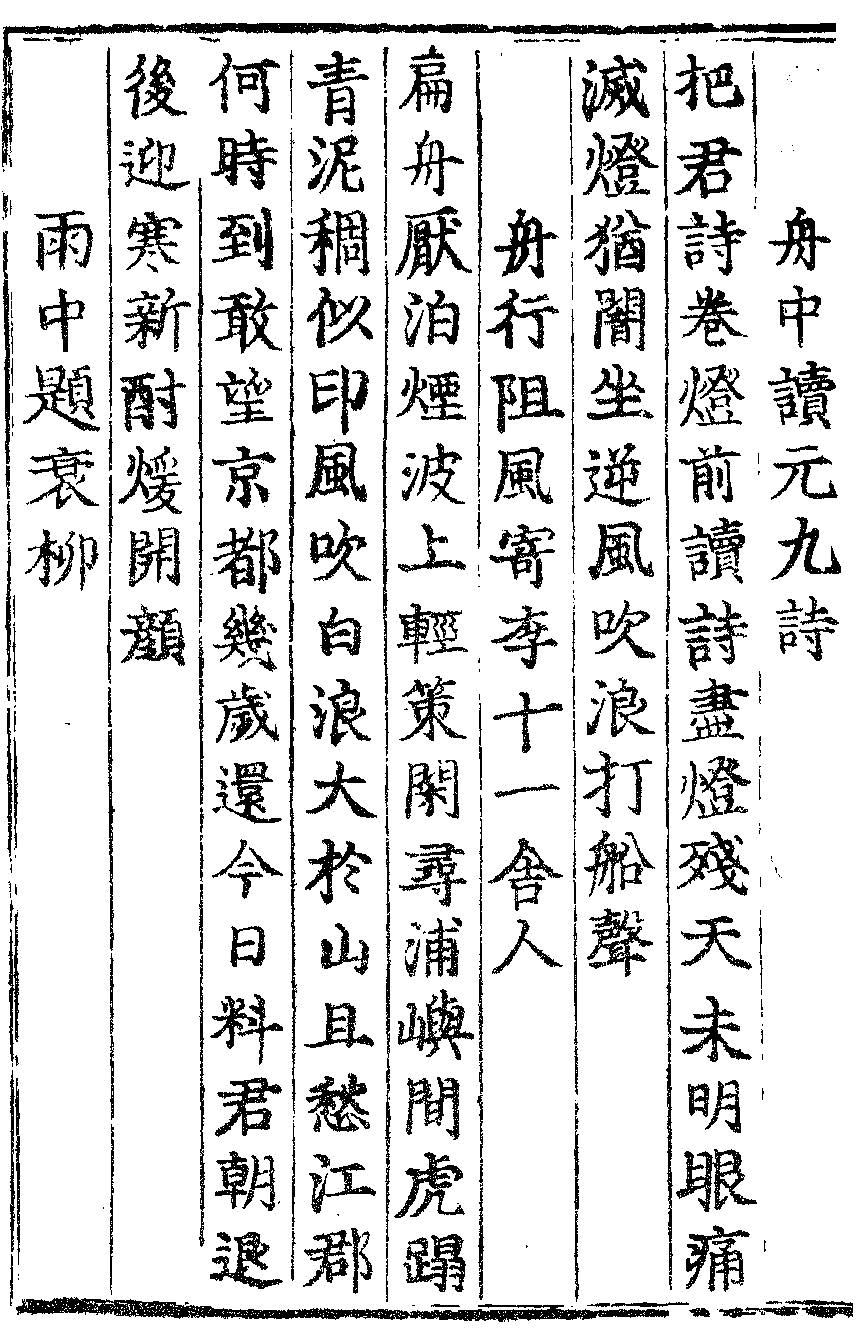 舟中讀元九詩
把君詩卷燈前讀詩盡燈殘天未明眼痛
滅燈猶闇坐逆風吹浪打船聲
舟行阻風寄李十一舍人
扁舟厭泊煙波上輕策閑尋浦嶼間虎蹋
青泥稠似印風吹白浪大於山且愁江郡
何時到敢望京都幾歲還今日料君朝退
後迎寒新酎煖開顏
雨中題衰柳